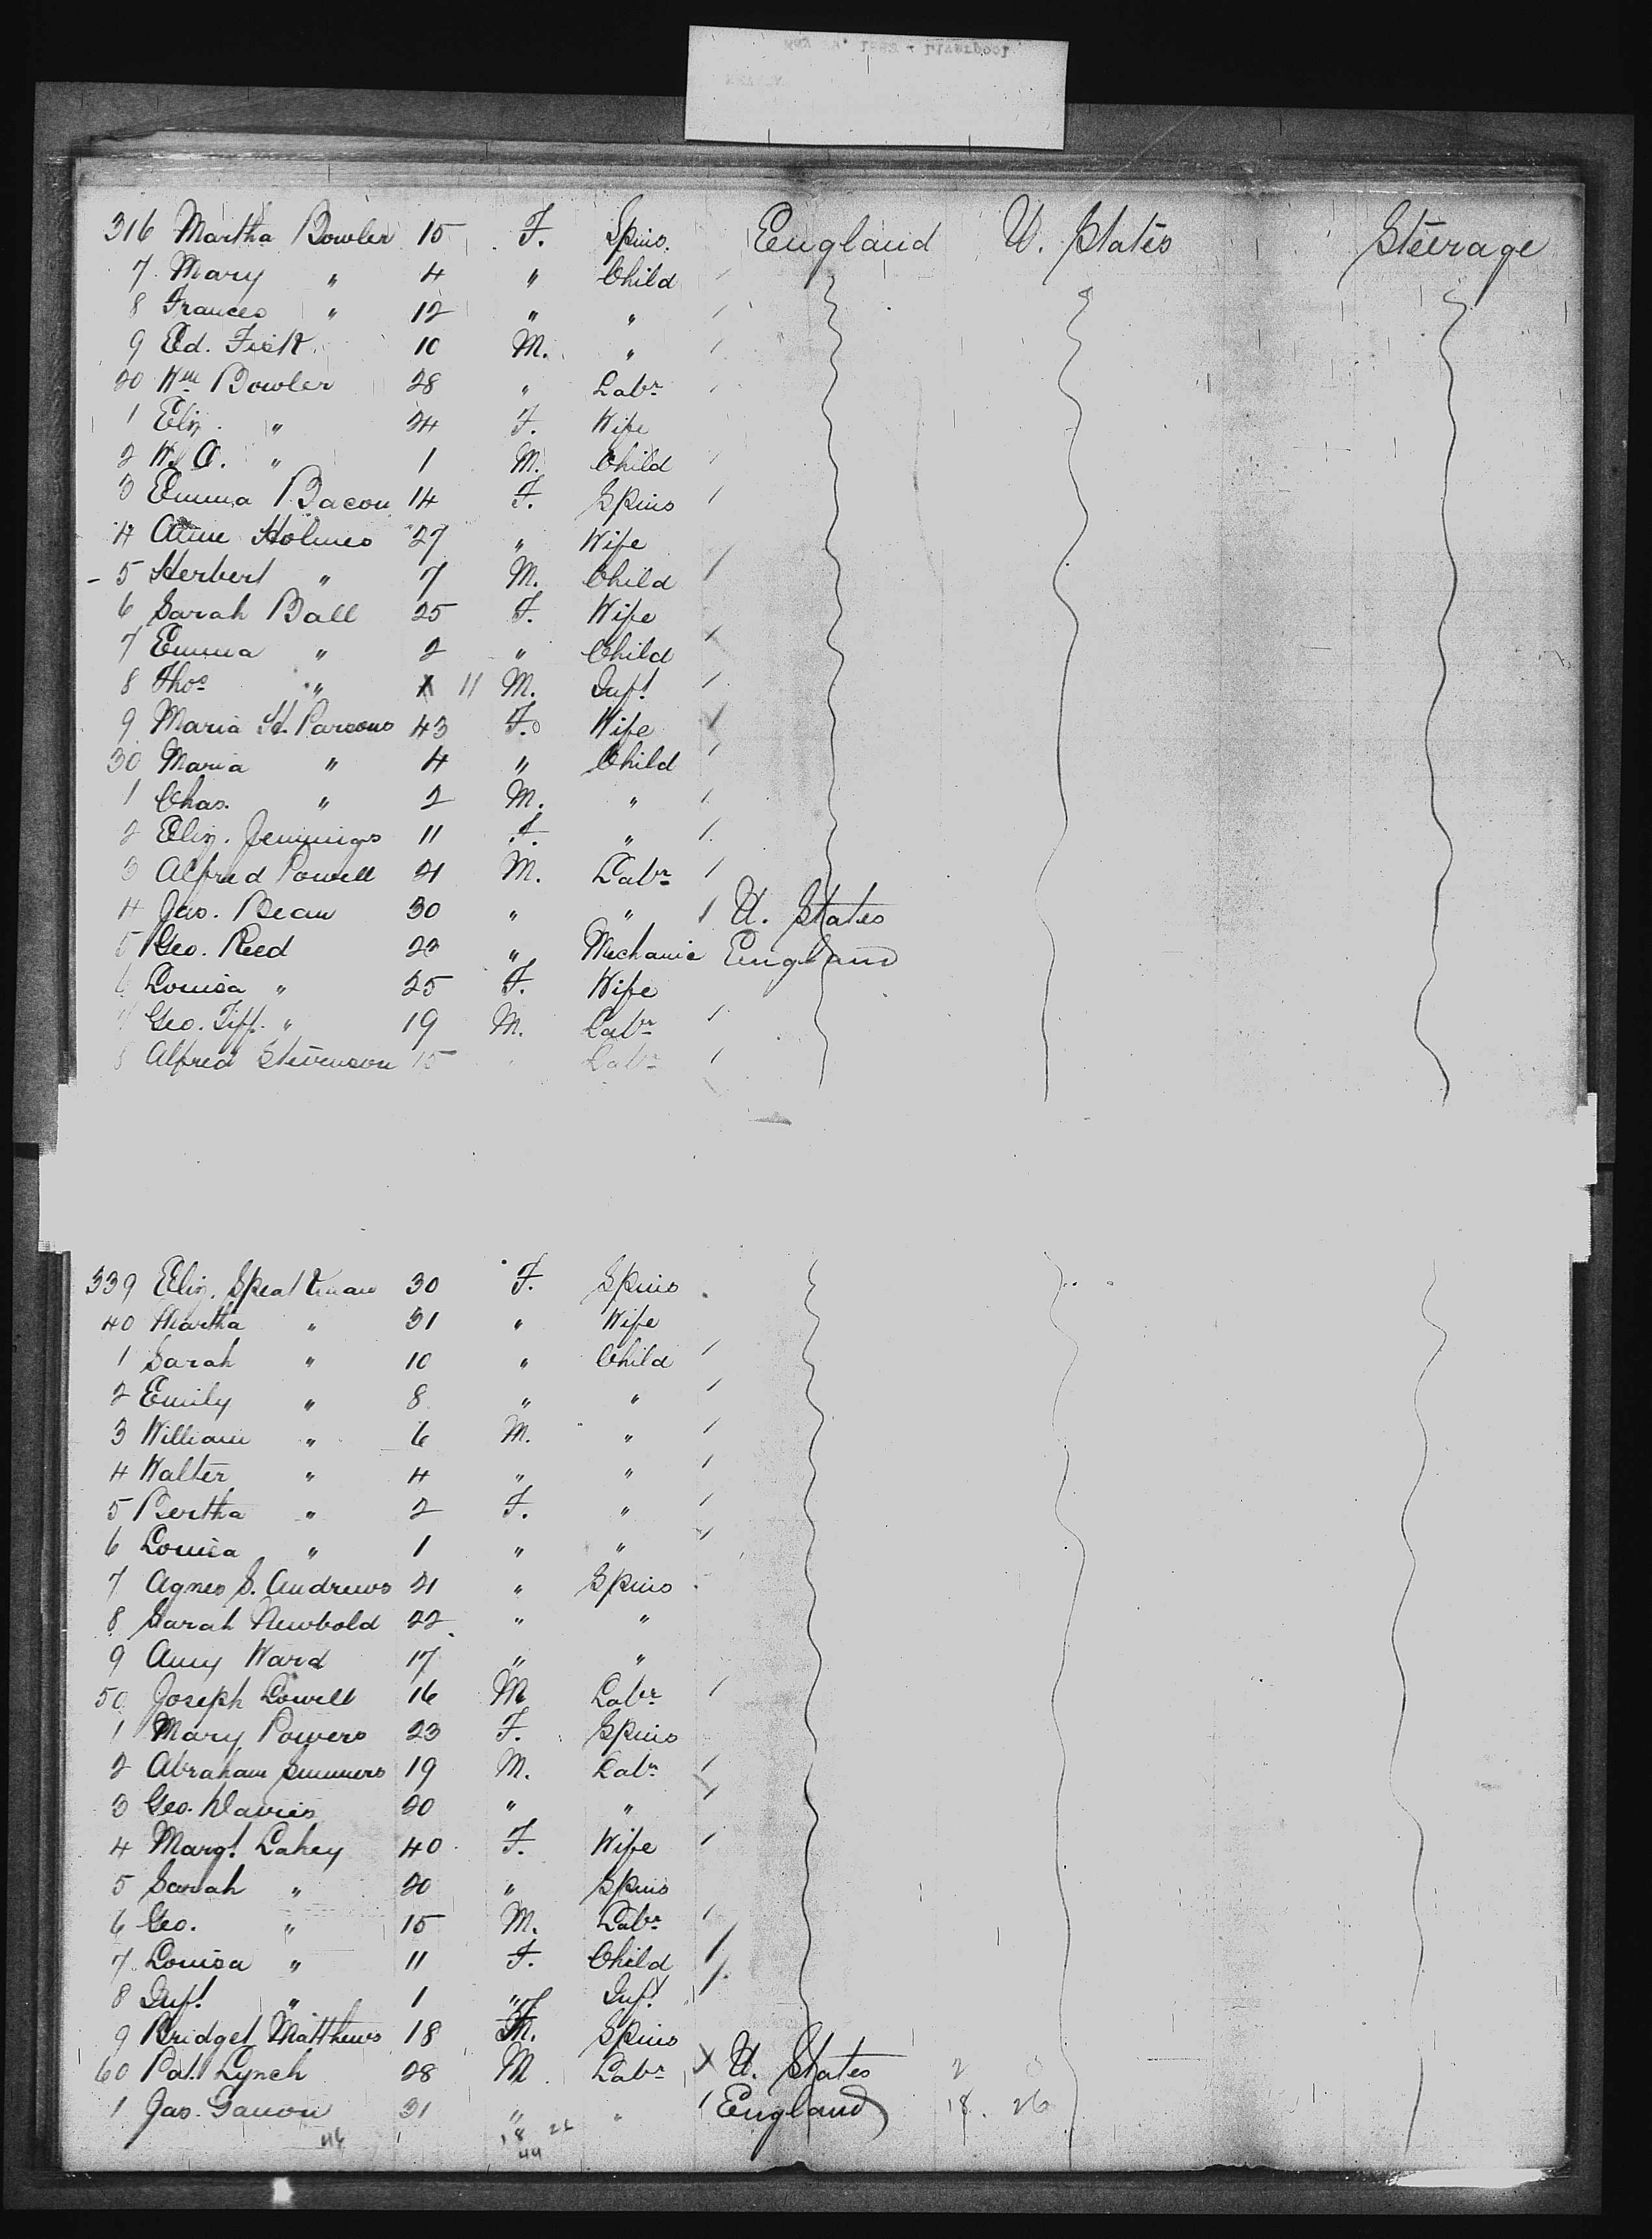 316 Martha Bowler 15 F. Spins. England U. States Steerage
7 Mary " 4 " Child
8 Frances " 12 " "
9 Ed. Fisk 10 M. "
20 Wm Bowler 28 " Labr
1 Eliz. " 24 F. Wife
2 W. A. " 1 M. Child
3 Emma Bacon 14 F. Spins
4 Holmes 27 " Wife
5 Herbert " 7 M. Child
6 Sarah Ball 25 F. Wife
7 Emma " 2 " Child
8 Thos " 11 M. Inft
9 Maria H. Parsons 43 F. Wife
30 Maria " 4 " Child
1 Chas. " 2 M. "
2 Eliz. Jennings 11 F. "
3 Alfred Powell 21 M. Labr
4 Jas. Bean 30 " " U. States
5 Geo. Reed 23 " Mechanic England
6 Louisa " 25 F. Wife
7 Geo. Tiff. " 19 M. Labr
8 Alfred Stevenson 15 Labr
339 Eliz. Speakman 30 F. Spins
40 Martha " 31 " Wife
1 Sarah " 10 " Child
2 Emily " 8 " "
3 William " 6 M. "
4 Walter " 4 " "
5 Bertha " 2 F. "
6 Louisa " 1 " "
7 Agnes S. Andrews 21 " Spins
8 Sarah Newbold 22 " "
9 Amy Ward 17 " "
50 Joseph Lowell 16 M Labr
1 Mary Powers 23 F. Spins
2 Abraham Summers 19 M. Labr
3 Geo. Davies 20 " "
4 Margt Lahey 40 F. Wife
5 Sarah " 20 " Spins
6 Geo. " 15 M. Labr
7 Louisa " 11 F. Child
8 Inft " 1 " Inft
9 Bridget Matthews 18 F. Spins
60 Pat. Lynch 28 M Labr U. States 2
1 Jas. Ganon 31 " " England 18. 26
46 18 26
44